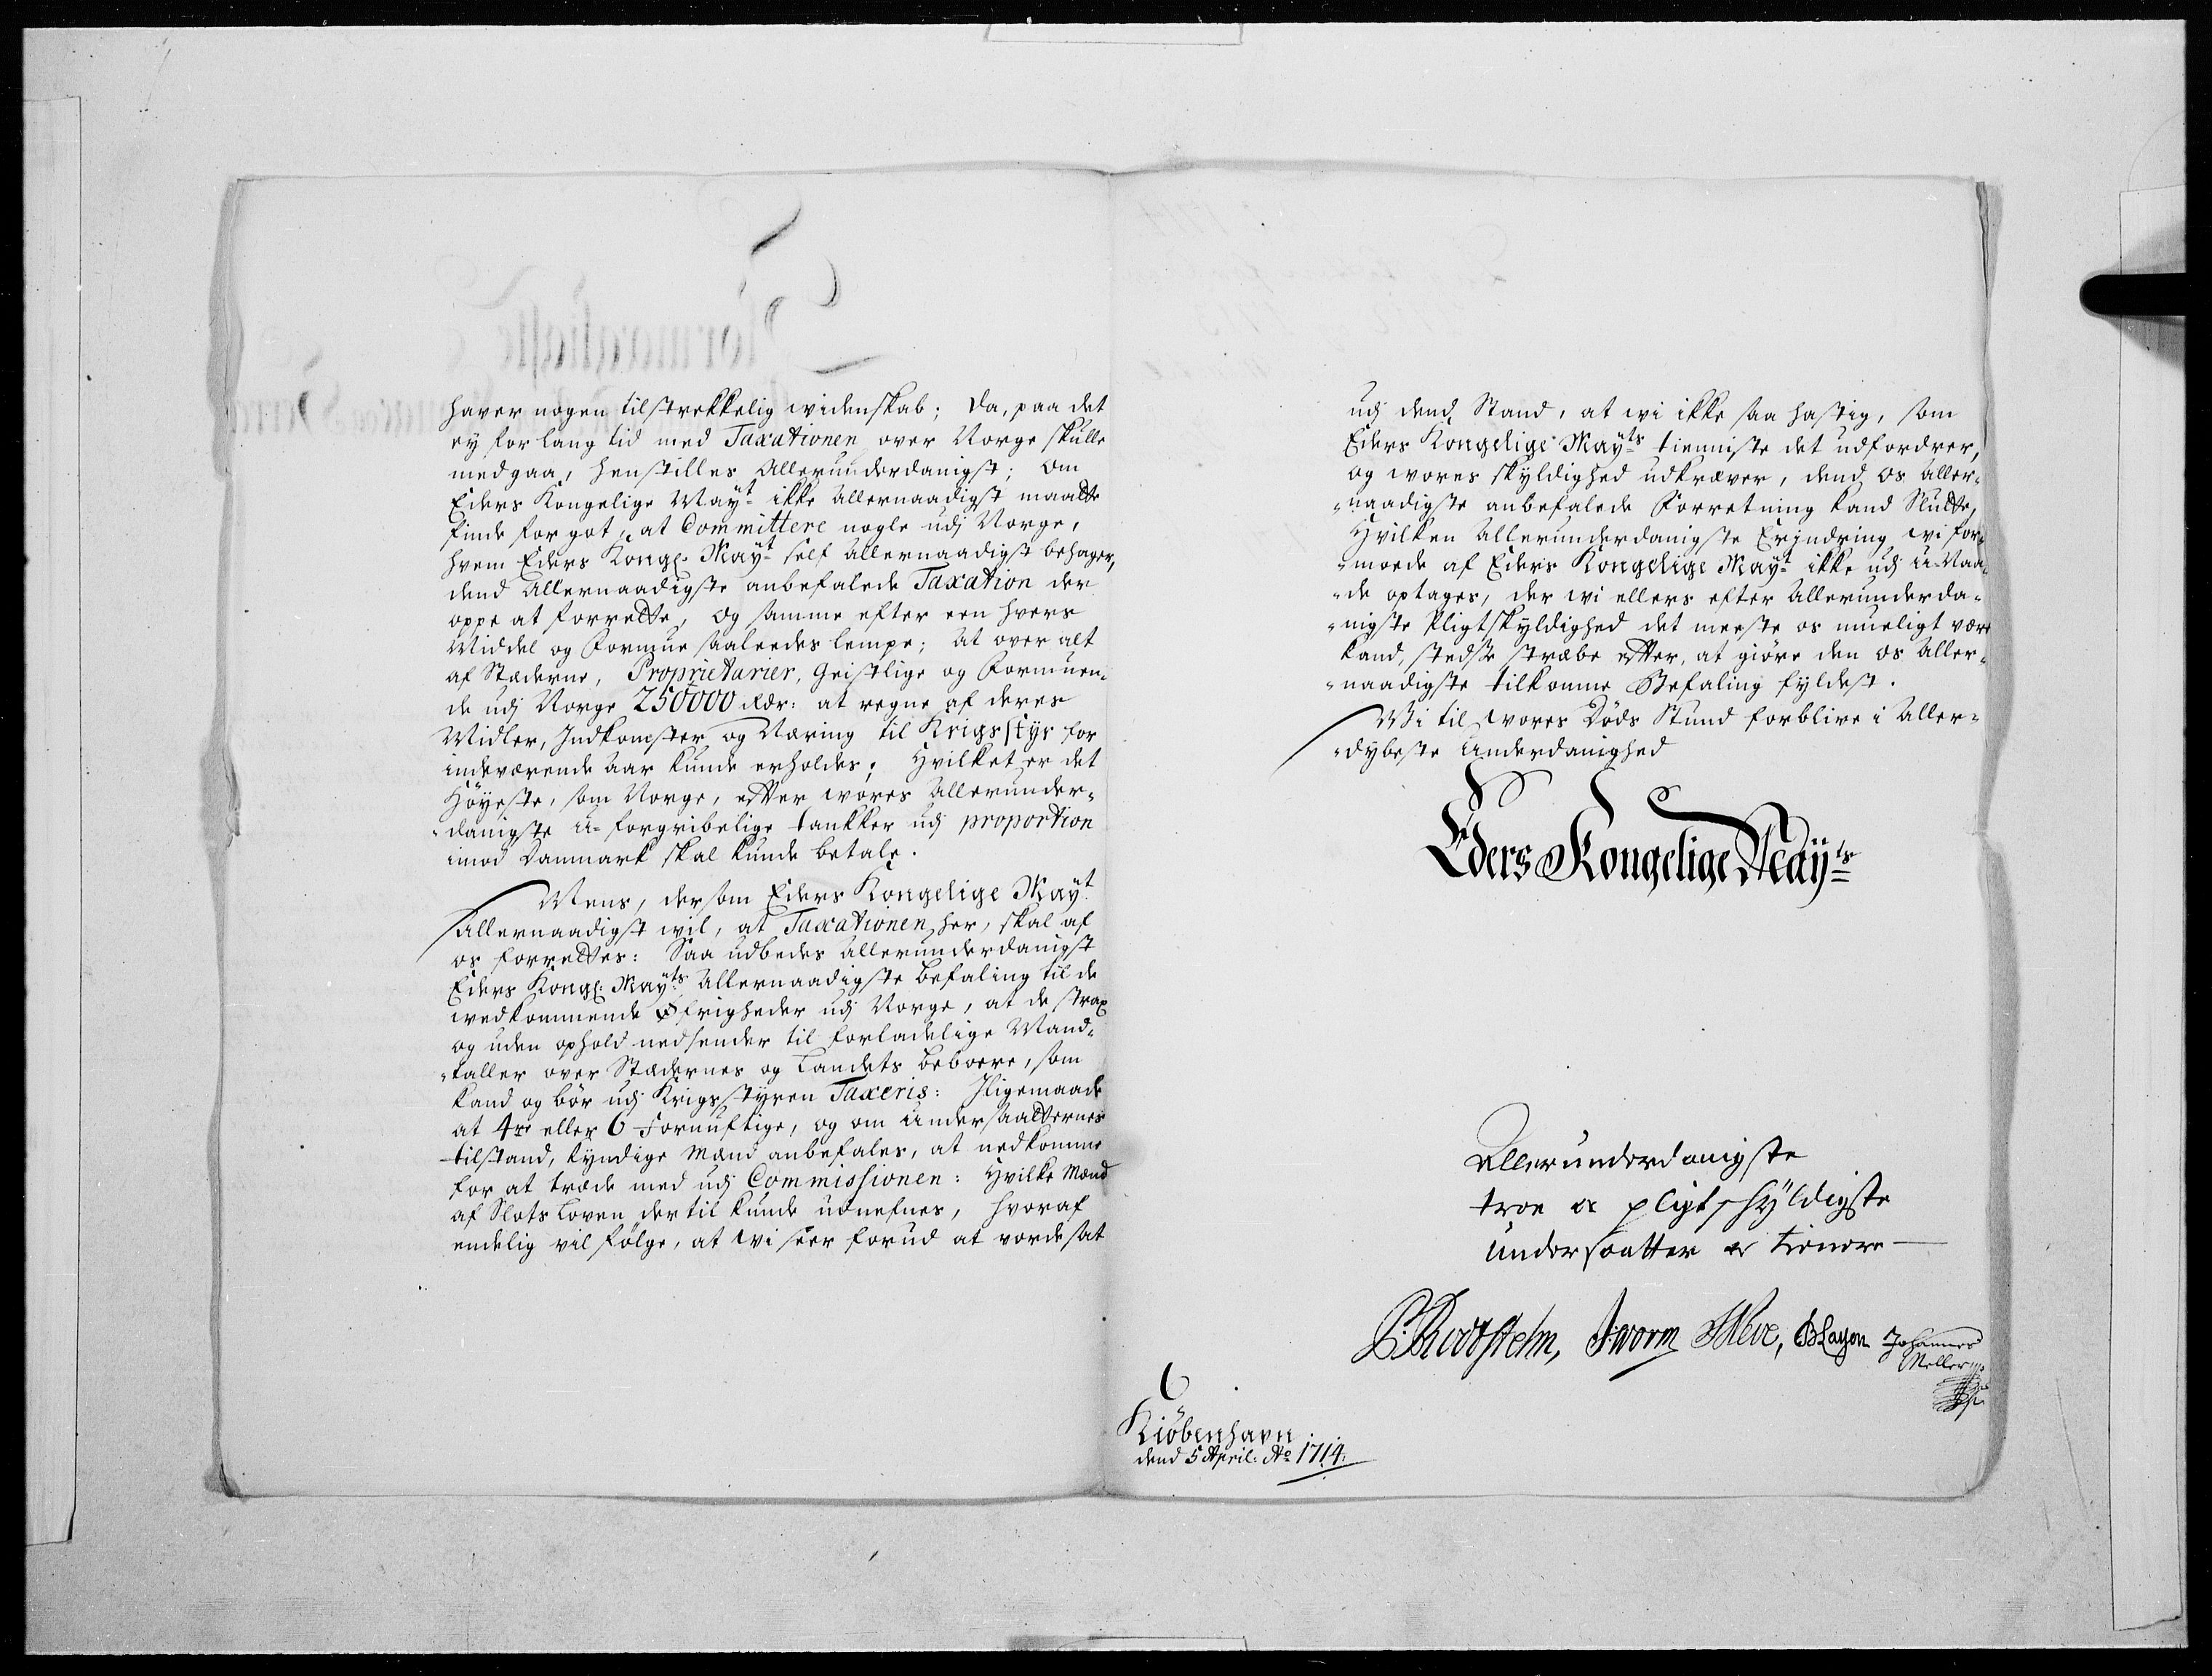 haver nogen tilstrekkelig widenskab; Da, paa det
ey for lang tid med Taxationen over Norge skulle
medgaa, henstilles Allerunderdanigst; om
Eders Kongelige Mayt ikke Allernaadigst maatte
finde for got, at Committere nogle udj Norge,
hvem Eders Kongl. Mayt self Allernaadigst behager,
dend Allernaadigste anbefalede Taxation der
oppe at forrette, og samme efter een hvers
Middel og Formue saaledes lempe; at over alt
af Stæderne, Proprietarier, Geistlige og Formuen-
de udj Norge 250000 Rdr: at regne af deres
Midler, Indkomster og Næring til Krigs Styr for
indeværende Aar kunde erholdes; Hvilket er det
Höyeste, som Norge, etter wores Allerunder-
-danigste u-forgribelige tankker udj proportion
imod Danmark skal kunde betale.
Mens, dersom Eders Kongelige Mayt
Allernaadigst wil, at Taxationen her, skal af
os forrettes: Saa udbedes Allerunderdanigst
Eders Kongl: Mayts Allernaadigste befaling til de
wedkommende Øfrigheder udj Norge, at de strax
og uden ophold nedsender til forladelige Mand-
-taller over Stædernes og Landets beboere, som
kand og bör udj Krigsstyren Taxeris: Iligemaade
at 4re eller 6 Fornuftige, og om Undersaatternes
tilstand, kyndige Mænd anbefales, at nedkomme
for at træde med udj Commissionen: Hvilke Mænd
af Slots Loven dertil kunde udnefnes, hvoraf
endelig vil fölge, at wi seer forud at vorde sat
udj dend Stand, at wi ikke saa hastig, som
Eders Kongelige Mayts tienniste det udfordrer,
og wores skyldighed udkræver, dend os Aller-
-naadigste anbefalede Forretning kand Slutte,
Hvilken Allerunderdanigste Erindring wi for-
-moede af Eders Kongelige Mayt ikke udj U-Naa-
-de optages, der wi ellers efter Allerunderda-
-nigste Pligtskyldighed det meeste os mueligt være
kand, stedse stræbe etter, at giöre den os Aller-
-naadigste tilkomne Befaling fyldest.
Wi til wores Döds Stund forblive i Aller-
-dybeste Underdanighed
Eders Kongelige Mayts
Allerunderdanigste
troe og pligtskÿldigste
undersaatter og tienere
Worm
Johannes
Meller
Kiöbenhavn
dend 5 April: Ao 1714.